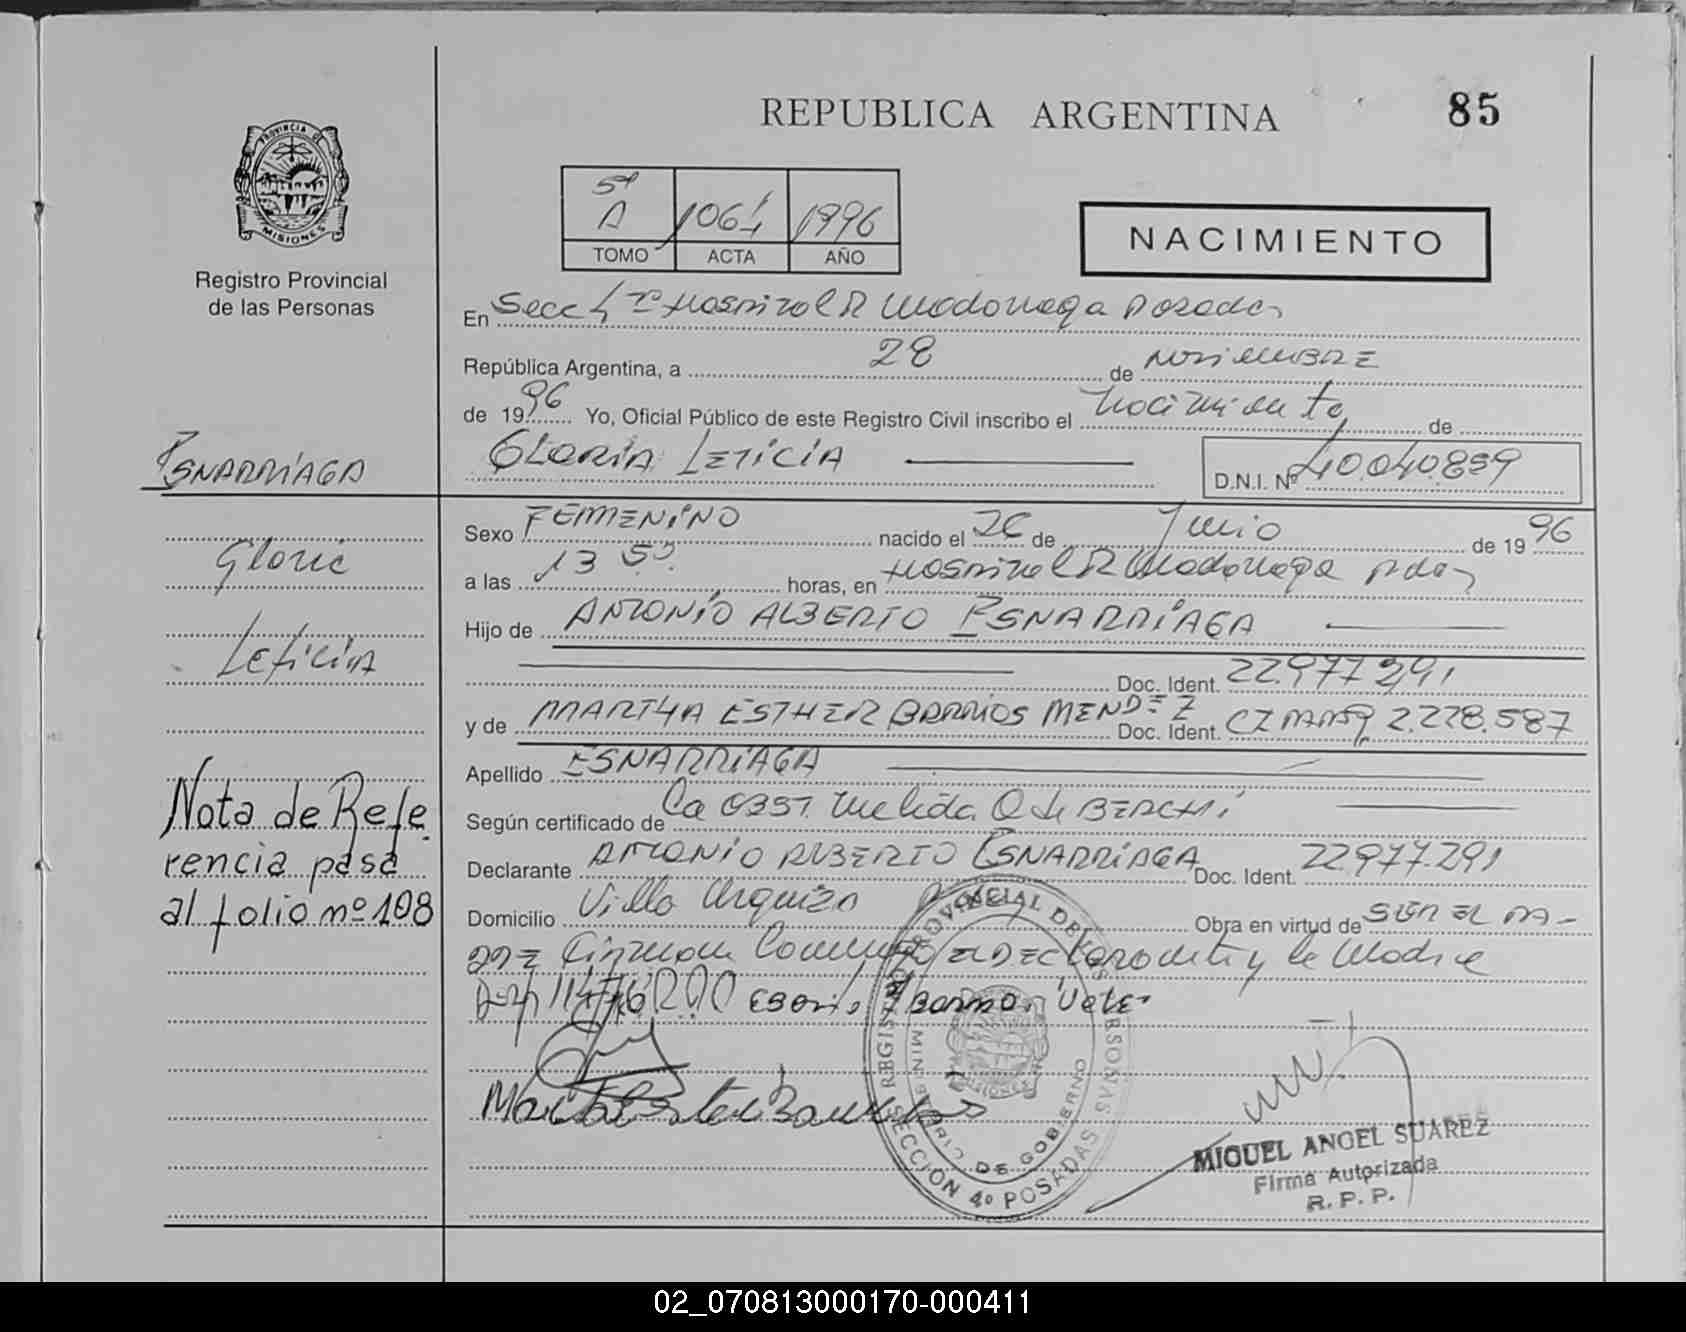 REPUBLICA ARGENTINA
85
PROVINCIA DE
MISIONES
Registro Provincial
de las Personas
5ª
A 1061 1996
TOMO ACTA AÑO
NACIMIENTO
En Secc 4ta Hospital R Madariaga Posadas
República Argentina, a 28 de NOVIEMBRE
de 1996 Yo, Oficial Público de este Registro Civil inscribo el Nacimiento de
GLORIA LETICIA
D.N.I. Nº 40.040.859
ESNARRIAGA
Gloria
Leticia
Nota de Refe
rencia pasa
al folio nº 108
Sexo FEMENINO nacido el 26 de Junio de 1996
a las 13 50 horas, en Hospital R Madariaga Pdas
Hijo de ANTONIO ALBERTO ESNARRIAGA
Doc. Ident. 22.977.291
y de MARTHA ESTHER BARRIOS MENDEZ Doc. Ident. 2.278.587
Apellido ESNARRIAGA
Según certificado de La Obst. Melida Q de BERCHI
Declarante ANTONIO ALBERTO ESNARRIAGA Doc. Ident. 22.977.291
Domicilio Villa Urquiza Obra en virtud de SER EL PA-
DRE Firman Conmigo EL DEClarante y la Madre
Vale
REGISTRO PROVINCIAL DE LAS PERSONAS
MINISTERIO DE GOBIERNO
SECCION 4º POSADAS
MISIONES
MIGUEL ANGEL SUAREZ
Firma Autorizada
R. P. P.
02_070813000170-000411